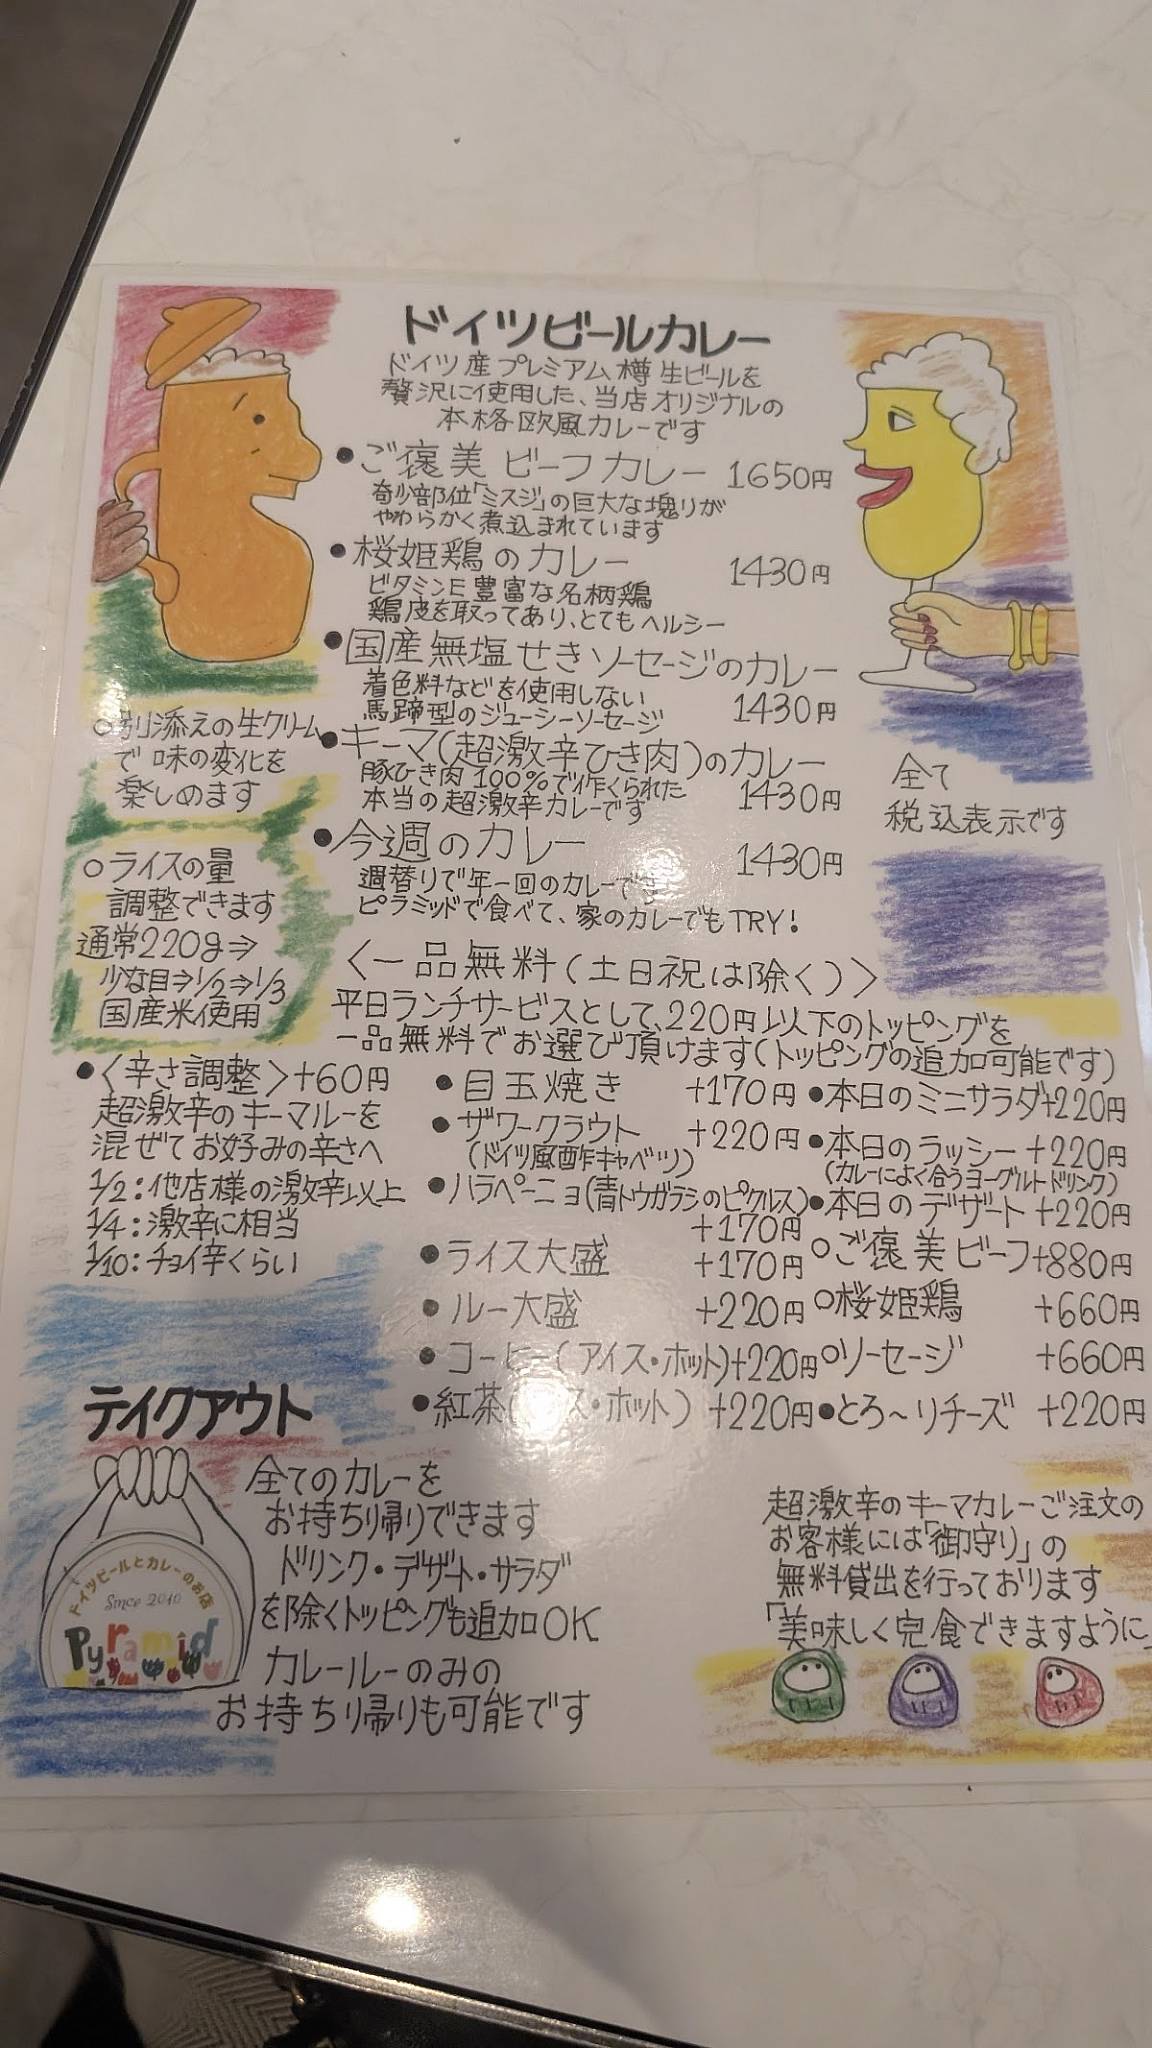 ドイツビールカレー
ドイツ産プレミアム樽生ビールを
贅沢に使用した、当店オリジナルの
本格欧風カレーです
●ご褒美ビーフカレー 1650円
希少部位「ミスジ」の巨大な塊りが
やわらかく煮込まれています
●桜姫鶏のカレー 1430円
ビタミンE豊富な名柄鶏
鶏皮を取ってあり、とてもヘルシー
●国産無塩せきソーセージのカレー
着色料などを使用しない
馬蹄型のジューシーソーセージ 1430円
●キーマ(超激辛ひき肉)のカレー
豚ひき肉100%で作くられた
本当の超激辛カレーです 1430円
●今週のカレー 1430円
週替りで年一回のカレーです
ピラミッドで食べて、家のカレーでもTRY!
○別添えの生クリーム
で味の変化を
楽しめます
○ライスの量
調整できます
通常220g⇒
少な目⇒1/2⇒1/3
国産米使用
全て
税込表示です
〈一品無料(土日祝は除く)〉
平日ランチサービスとして、220円以下のトッピングを
一品無料でお選び頂けます(トッピングの追加可能です)
●〈辛さ調整〉+60円
超激辛のキーマルーを
混ぜてお好みの辛さへ
1/2:他店様の激辛以上
1/4:激辛に相当
1/10:チョイ辛くらい
●目玉焼き +170円
●ザワークラウト +220円
(ドイツ風酢キャベツ)
●ハラペーニョ(青トウガラシのピクルス)
+170円
●ライス大盛 +170円
●ルー大盛 +220円
●コーヒー(アイス・ホット)+220円
●紅茶(アイス・ホット) +220円
●本日のミニサラダ+220円
●本日のラッシー +220円
(カレーによく合うヨーグルトドリンク)
●本日のデザート +220円
○ご褒美ビーフ+880円
○桜姫鶏 +660円
○ソーセージ +660円
●とろ～りチーズ +220円
テイクアウト
全てのカレーを
お持ち帰りできます
ドリンク・デザート・サラダ
を除くトッピングも追加OK
カレールーのみの
お持ち帰りも可能です
ドイツビールとカレーのお店
Since 2010
Pyramid
超激辛のキーマカレーご注文の
お客様には「御守り」の
無料貸出を行っております
「美味しく完食できますように」